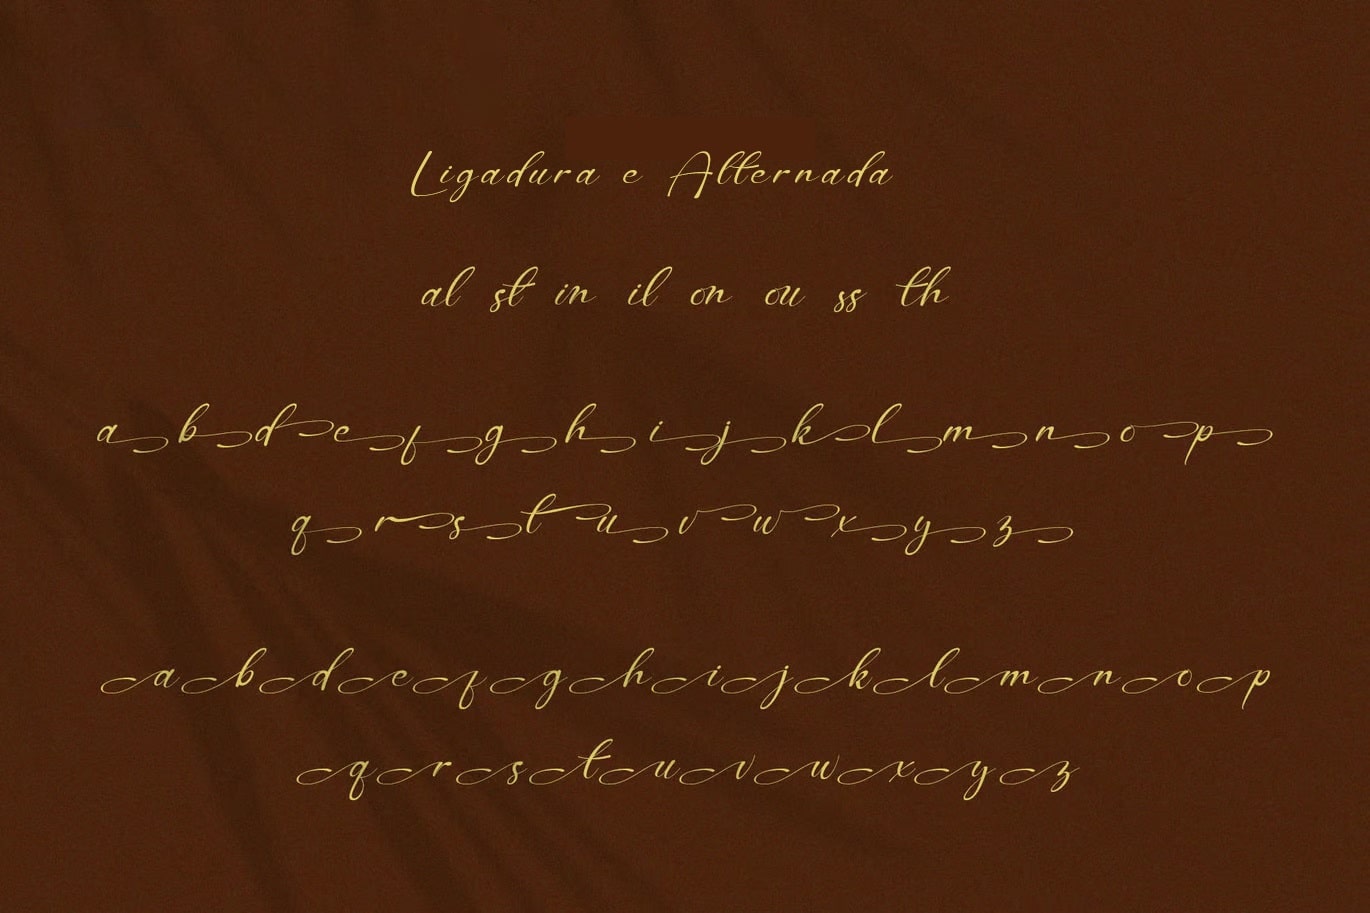 Ligadura e Alternada
al st in il on ou ss th
a b d e f g h i j k l m n o p
q r s t u v w x y z
a b d e f g h i j k l m n o p
q r s t u v w x y z